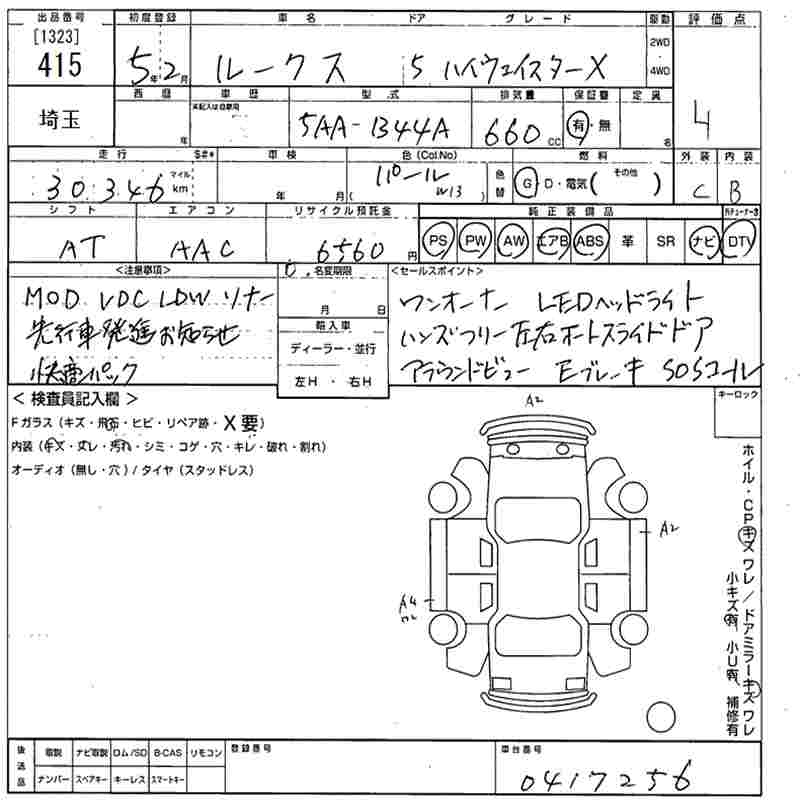 出品番号 初度登録 車名 ドア グレード 駆動 評価点
[1323]
415 5年2月 ルークス 5 ハイウェイスターX 2WD・4WD 4
埼玉 西暦 年 車歴 未記入は自家用 型式 5AA-B44A 排気量 660cc 保証書 有・無 定員 名
走行 S#* 車検 色(Col.No) 燃料 外装 内装
30,346 マイル km 年 月 パール (W13) 色替 G D・電気( その他 ) C B
シフト エアコン リサイクル預託金 純正装備品
AT AAC 6560円 PS PW AW エアB ABS 革 SR ナビ DTV
<注意事項> 名変期限 <セールスポイント>
MOD VDC LDW ソナー 月 日 ワンオーナー LEDヘッドライト
先行車発進お知らせ 輸入車 ハンズフリー左右オートスライドドア
快適パック ディーラー・並行 アラウンドビュー Eブレーキ SOSコール
左H・右H
<検査員記入欄> キーロック
Fガラス(キズ・飛石・ヒビ・リペア跡・X要)
内装(キズ・スレ・汚れ・シミ・コゲ・穴・キレ・破れ・割れ)
オーディオ(無し・穴)/タイヤ(スタッドレス)
A2
A2
A4
ホイル・CPキズ ワレ/ドアミラーキズ ワレ
小キズ有、小U有、補修有
後送品 取説 ナビ取説 ロム/SD B-CAS リモコン 登録番号 車台番号
ナンバー スペアキー キーレス スマートキー 0417256